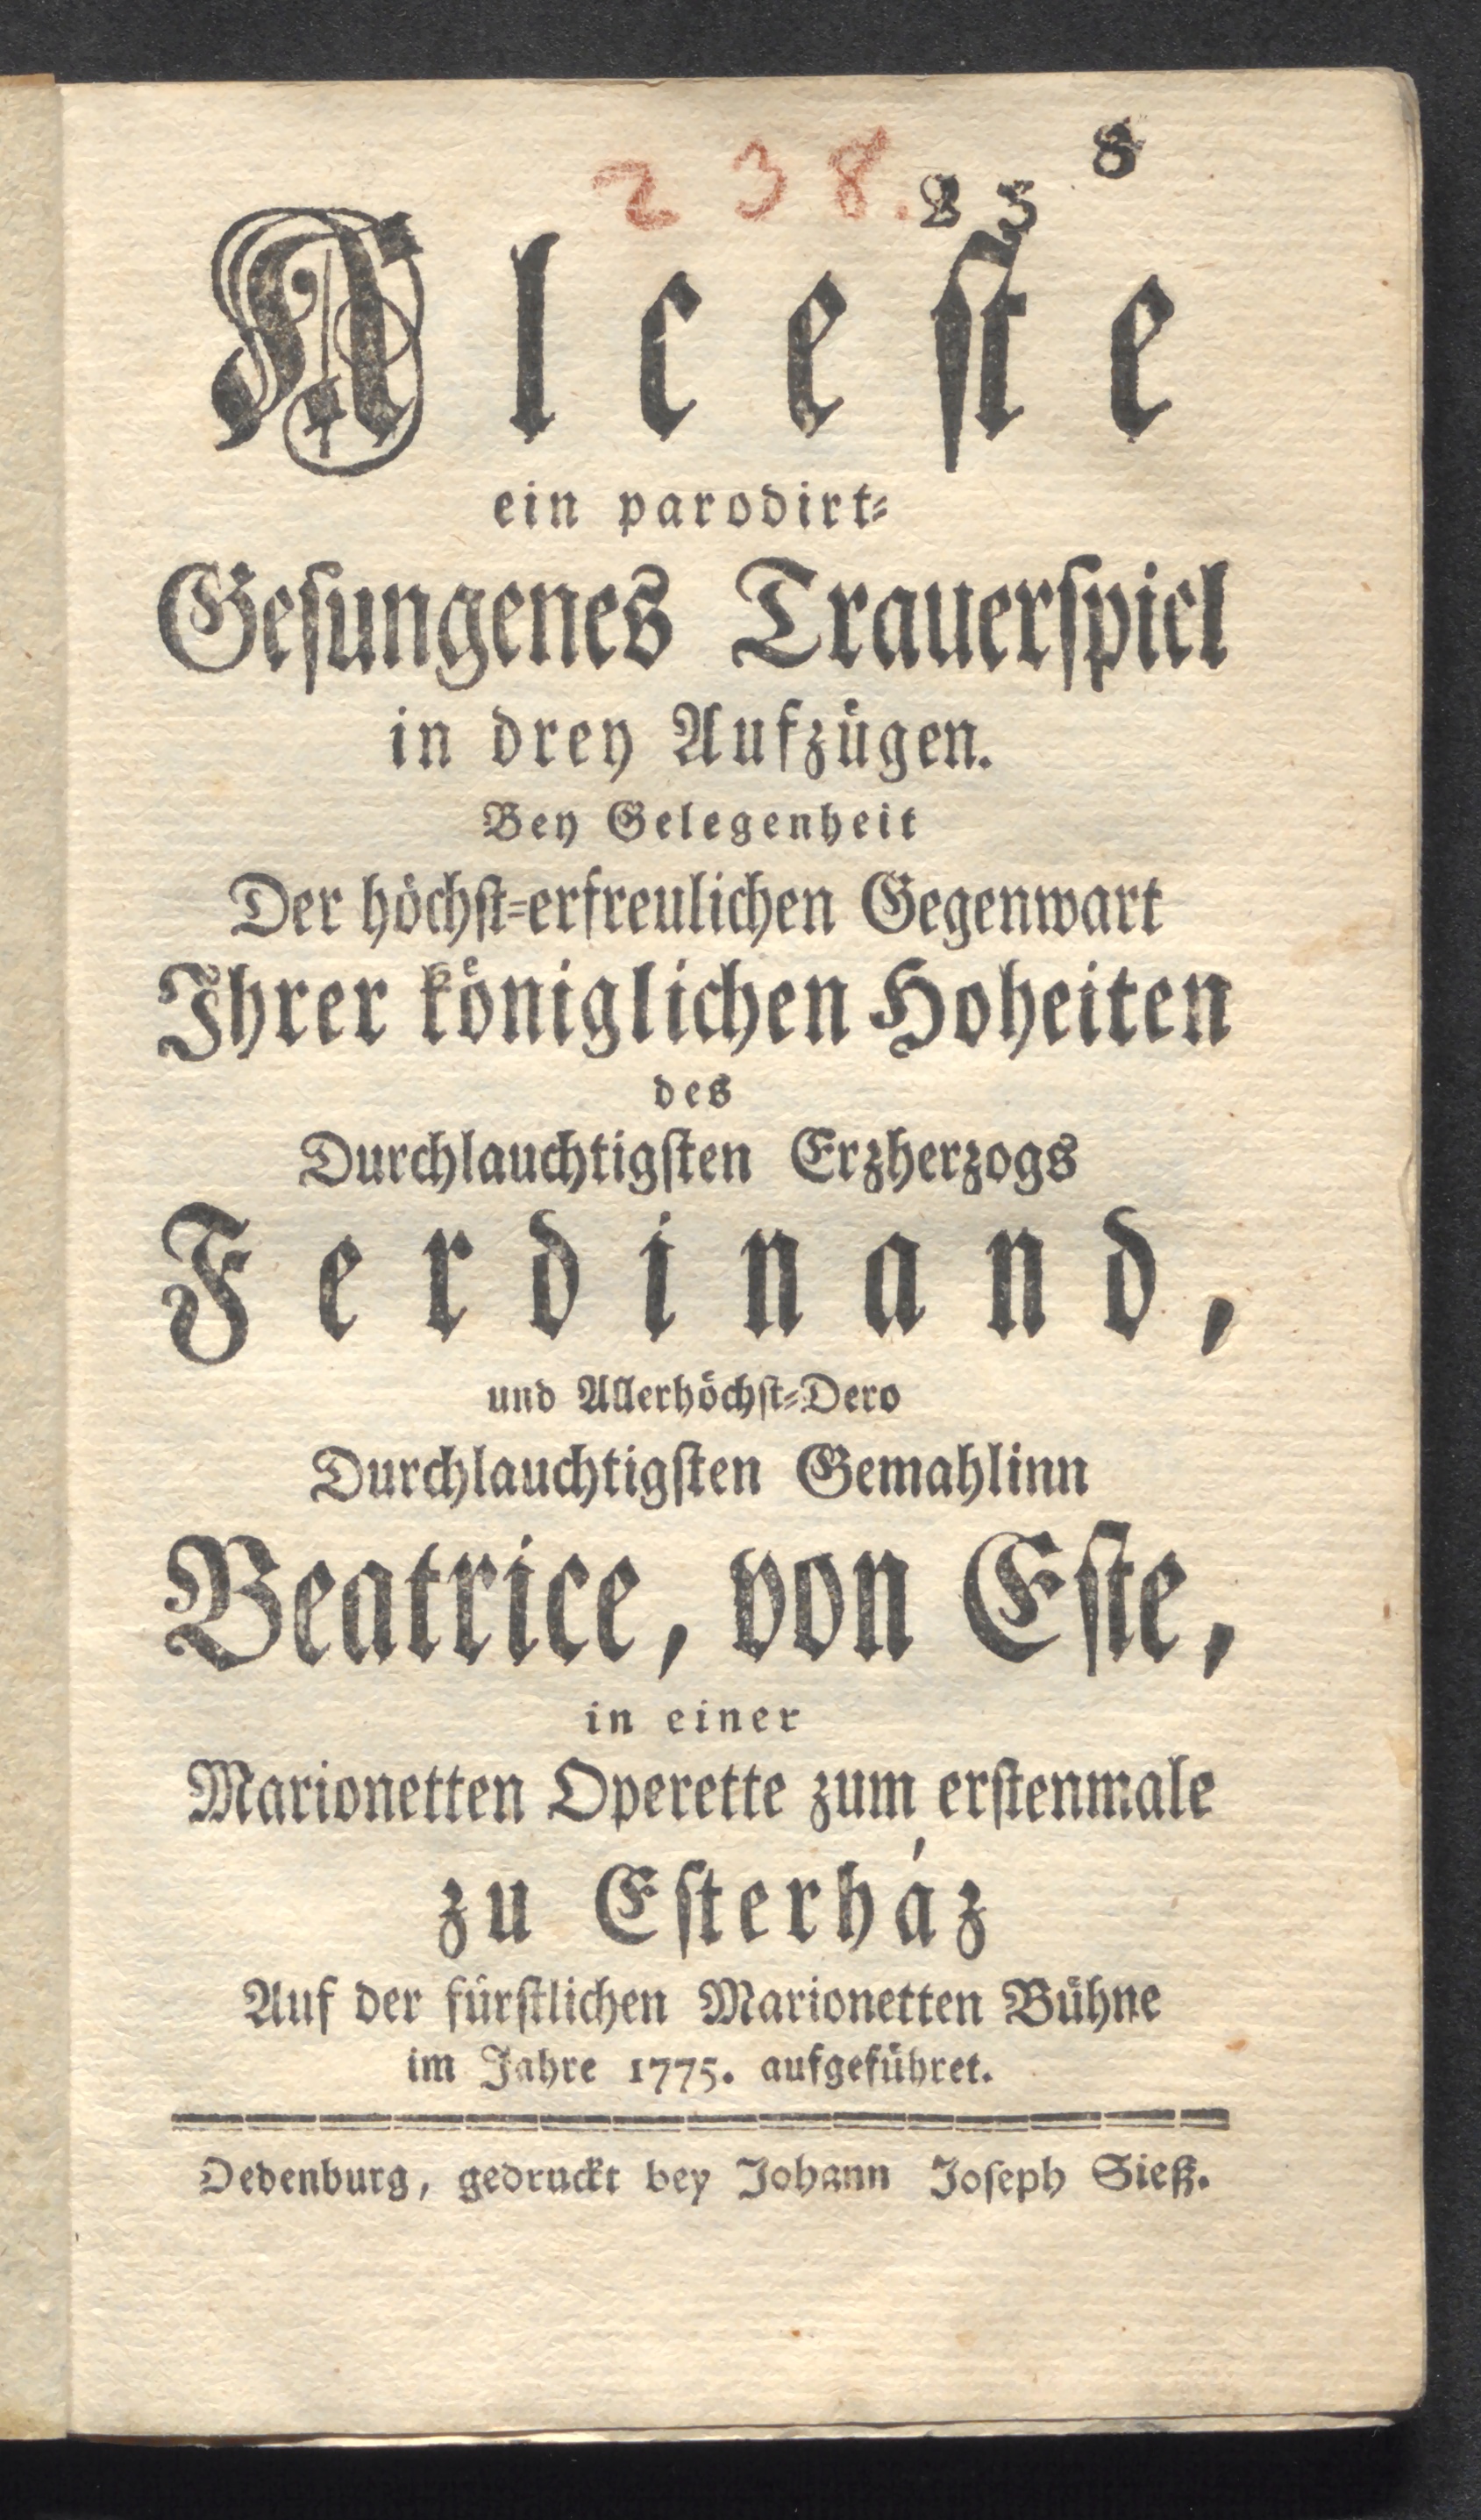 238.
238
Alceſte
ein parodirt⸗
Geſungenes Trauerſpiel
in drey Aufzügen.
Bey Gelegenheit
Der höchſt⸗erfreulichen Gegenwart
Ihrer königlichen Hoheiten
des
Durchlauchtigſten Erzherzogs
Ferdinand,
und Allerhöchſt⸗Dero
Durchlauchtigſten Gemahlinn
Beatrice, von Eſte,
in einer
Marionetten Operette zum erſtenmale
zu Eſterház
Auf der fürſtlichen Marionetten Bühne
im Jahre 1775. aufgeführet.
Oedenburg, gedruckt bey Johann Joſeph Sieß.